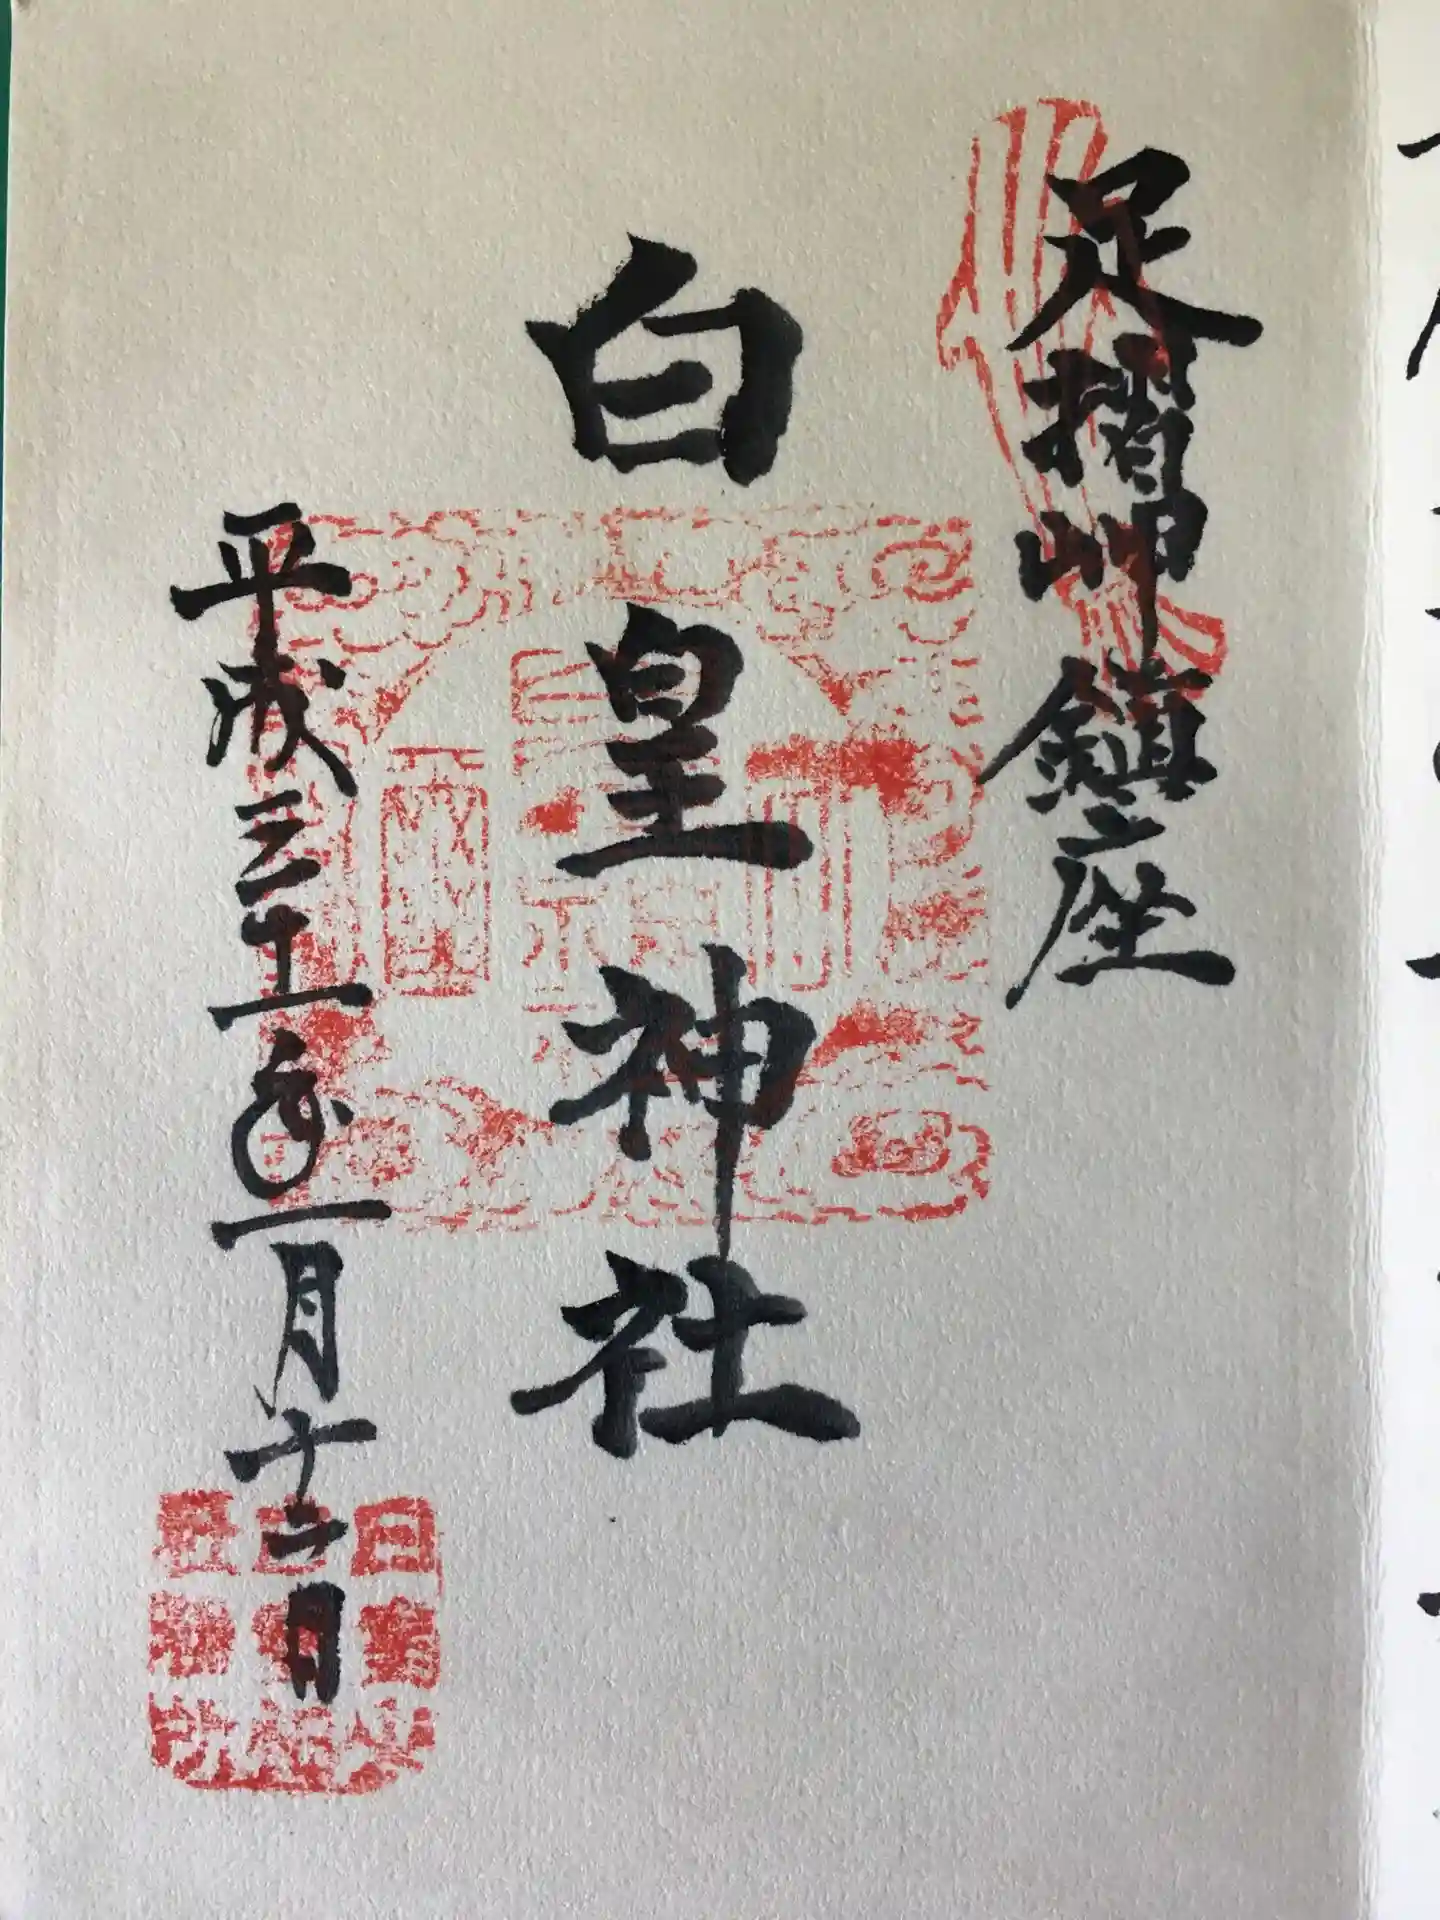 足摺岬鎮座
白皇神社
平成三十一年一月十二日